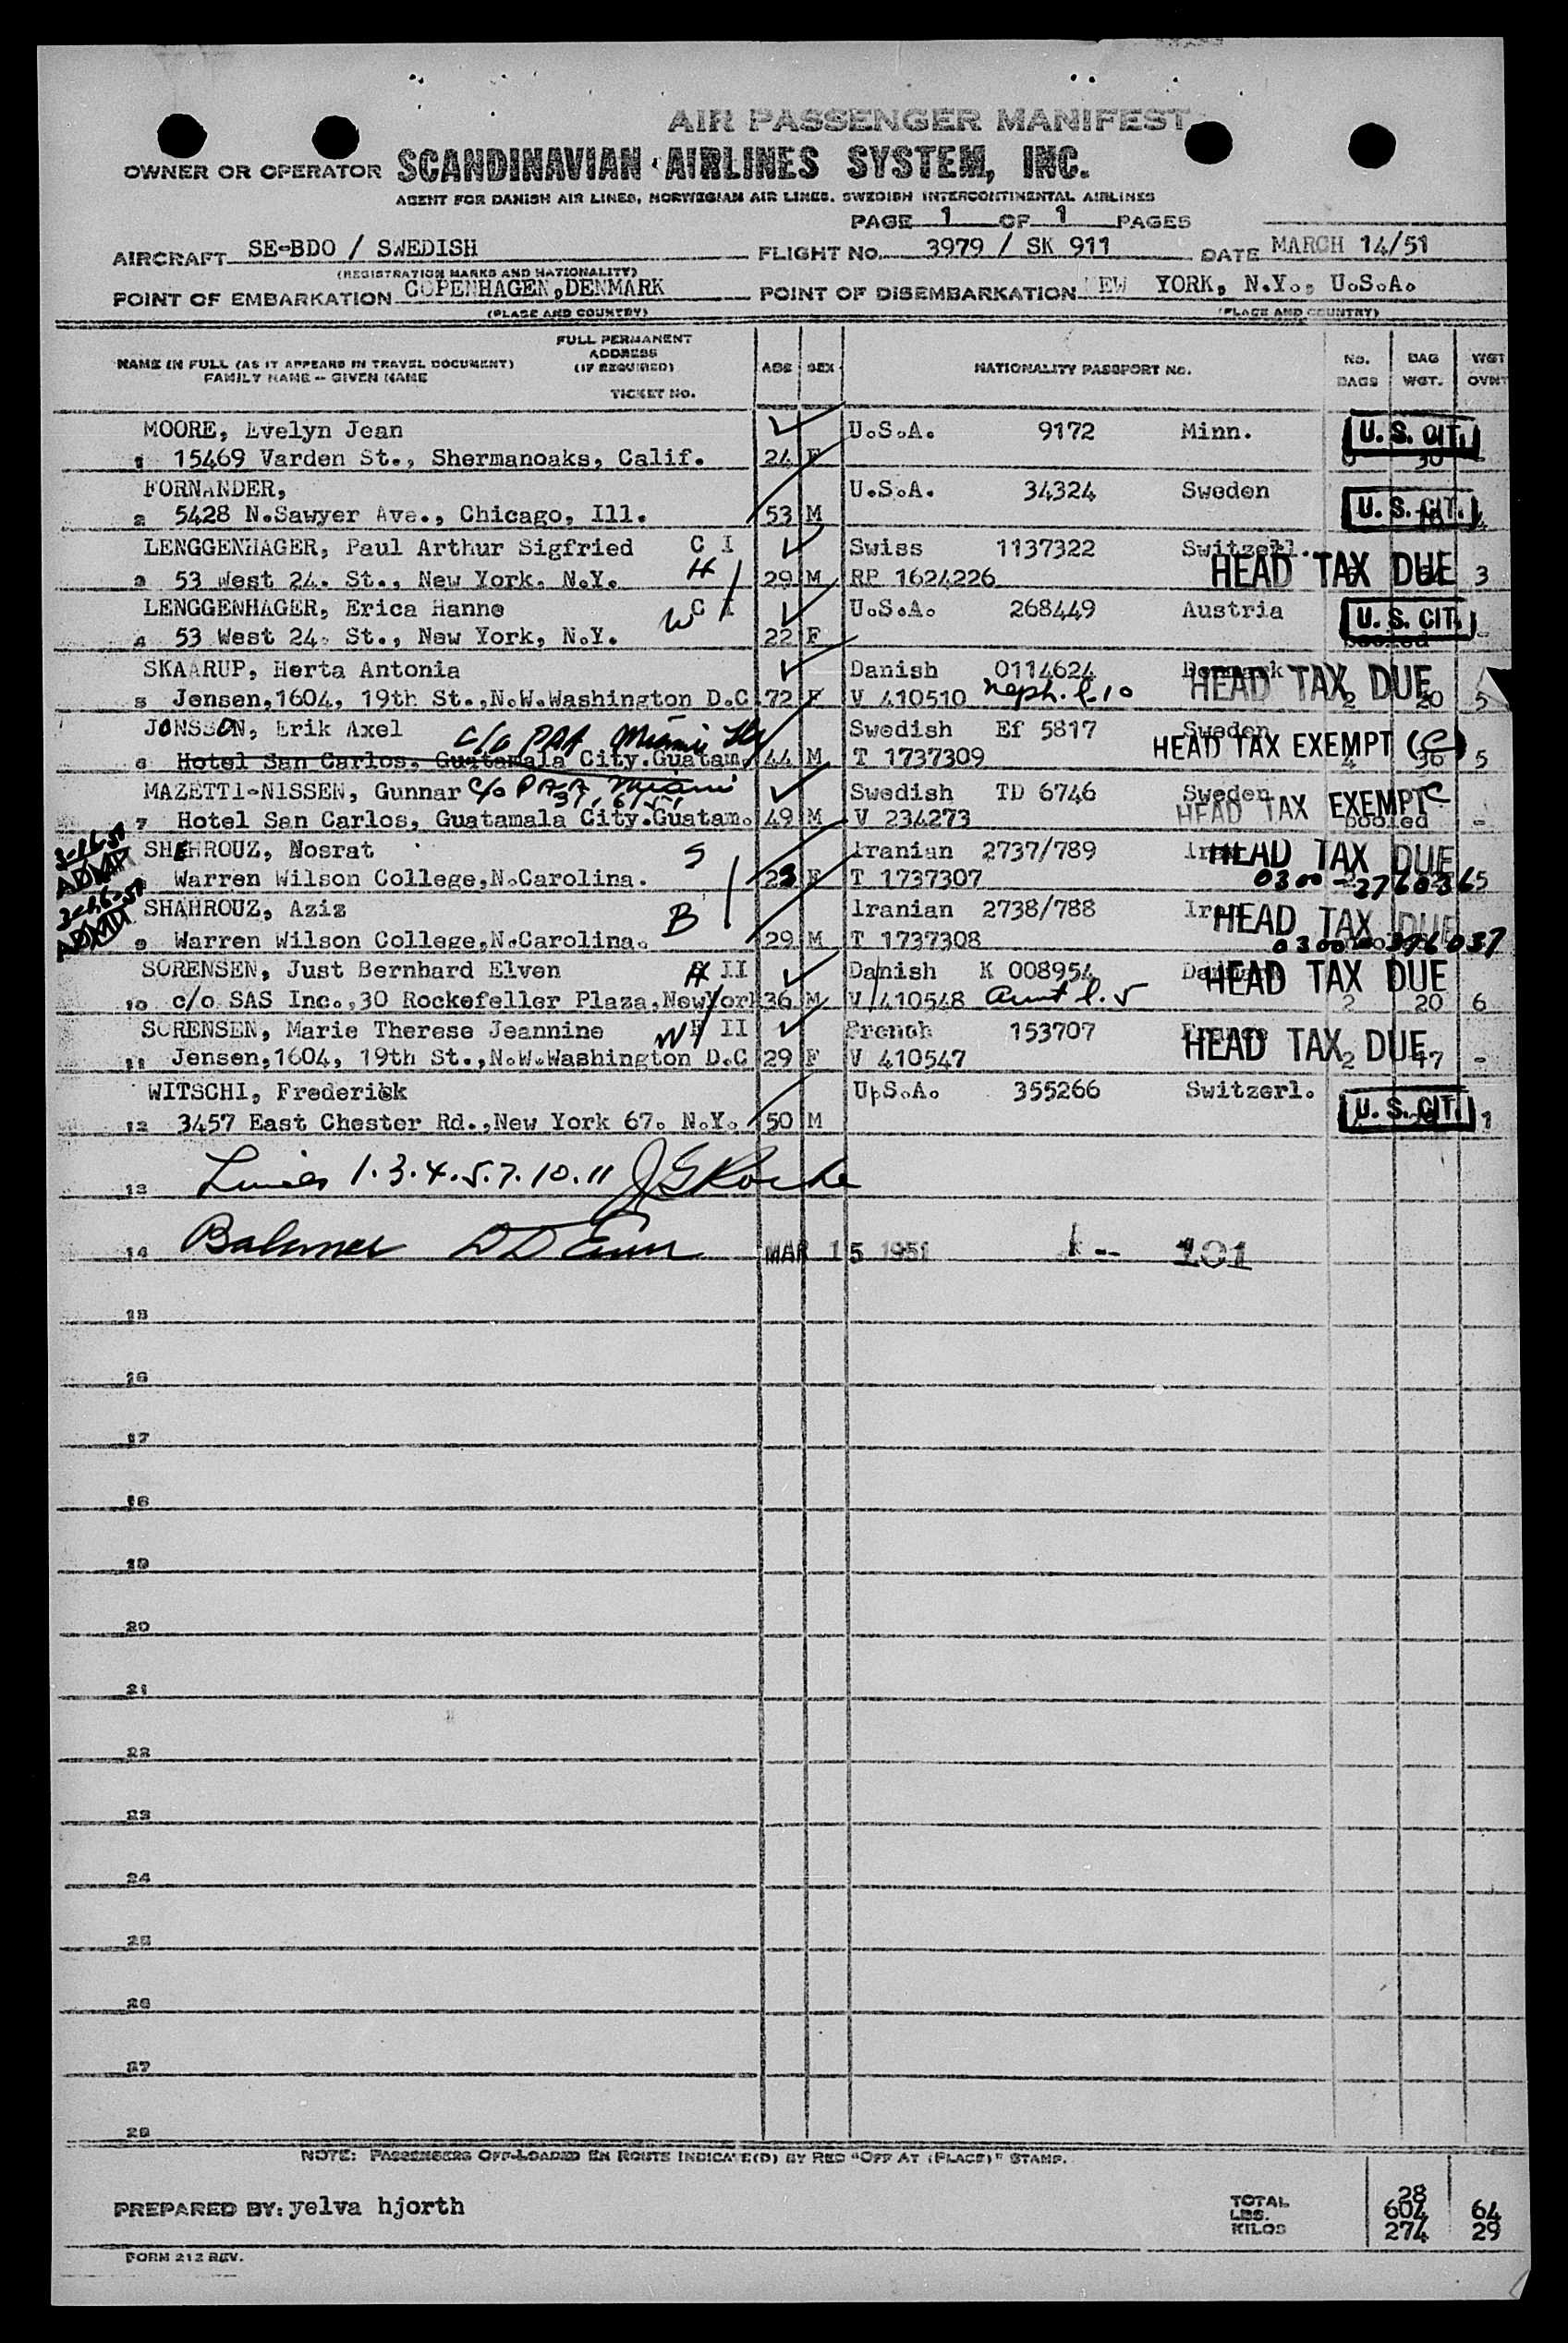 AIR PASSENGER MANIFEST
OWNER OR OPERATOR SCANDINAVIAN AIRLINES SYSTEM, INC.
AGENT FOR DANISH AIR LINES, NORWEGIAN AIR LINES, SWEDISH INTERCONTINENTAL AIRLINES
PAGE 1 OF 1 PAGES
AIRCRAFT SE-BDO / SWEDISH FLIGHT NO. 3979 / SK 911 DATE MARCH 14/51
(REGISTRATION MARKS AND NATIONALITY)
POINT OF EMBARKATION COPENHAGEN,DENMARK POINT OF DISEMBARKATION EW YORK, N.Y., U.S.A.
(PLACE AND COUNTRY) (PLACE AND COUNTRY)
NAME IN FULL (AS IT APPEARS IN TRAVEL DOCUMENT) FAMILY NAME – GIVEN NAME FULL PERMANENT ADDRESS (IF REQUIRED) TICKET NO. AGE SEX NATIONALITY PASSPORT NO. NO. BAGS BAG WGT. WGT OVNT
MOORE, Evelyn Jean U.S.A. 9172 Minn. U. S. CIT.
1 15469 Varden St., Shermanoaks, Calif. 24 F
FORNANDER, U.S.A. 34324 Sweden U. S. CIT.
2 5428 N.Sawyer Ave., Chicago, Ill. 53 M
LENGGENHAGER, Paul Arthur Sigfried C I Swiss 1137322 Switzerl.
3 53 West 24. St., New York, N.Y. H 29 M RP 1624226 HEAD TAX DUE 3
LENGGENHAGER, Erica Hanne W C I U.S.A. 268449 Austria U. S. CIT.
4 53 West 24. St., New York, N.Y. 22 F pooled -
SKAARUP, Herta Antonia Danish 0114624 Denmark HEAD TAX DUE
5 Jensen,1604, 19th St.,N.W.Washington D.C 72 F V 410510 neph. l. 10 2 20 5
JONSSON, Erik Axel c/o PAA Miami Swedish Ef 5817 Sweden HEAD TAX EXEMPT (C)
6 Hotel San Carlos, Guatamala City.Guatam. 44 M T 1737309 4 36 5
MAZETTI-NISSEN, Gunnar c/o PAA, Miami Swedish TD 6746 Sweden HEAD TAX EXEMPT C
7 Hotel San Carlos, Guatamala City.Guatam. 49 M V 234273 pooled -
3-16-51 SHEHROUZ, Nosrat S Iranian 2737/789 Iran HEAD TAX DUE
ADMD Warren Wilson College,N.Carolina. 23 F T 1737307 0300-276036 5
3-16-51 SHAHROUZ, Aziz B Iranian 2738/788 Iran HEAD TAX DUE
ADMD 9 Warren Wilson College,N.Carolina. 29 M T 1737308
SORENSEN, Just Bernhard Elven H II Danish K 008954 Danmark HEAD TAX DUE
10 c/o SAS Inc.,30 Rockefeller Plaza,NewYork 36 M V 410548 aunt l. 5 2 20 6
SORENSEN, Marie Therese Jeannine W F II French 153707 France HEAD TAX DUE
11 Jensen,1604, 19th St.,N.W.Washington D.C 29 F V 410547 2 17 -
WITSCHI, Frederick U.S.A. 355266 Switzerl. U. S. CIT.
12 3457 East Chester Rd.,New York 67. N.Y. 50 M 1
13 Lines 1.3.4.5.7.10.11 J G Roche
14 Balance MAR 15 1951 101
15
16
17
18
19
20
21
22
23
24
25
26
27
28
NOTE: PASSENGERS OFF-LOADED EN ROUTE INDICATE(D) BY RED "OFF AT (PLACE)" STAMP.
PREPARED BY: yelva hjorth
TOTAL 28
LBS. 604 64
KILOS 274 29
FORM 212 REV.